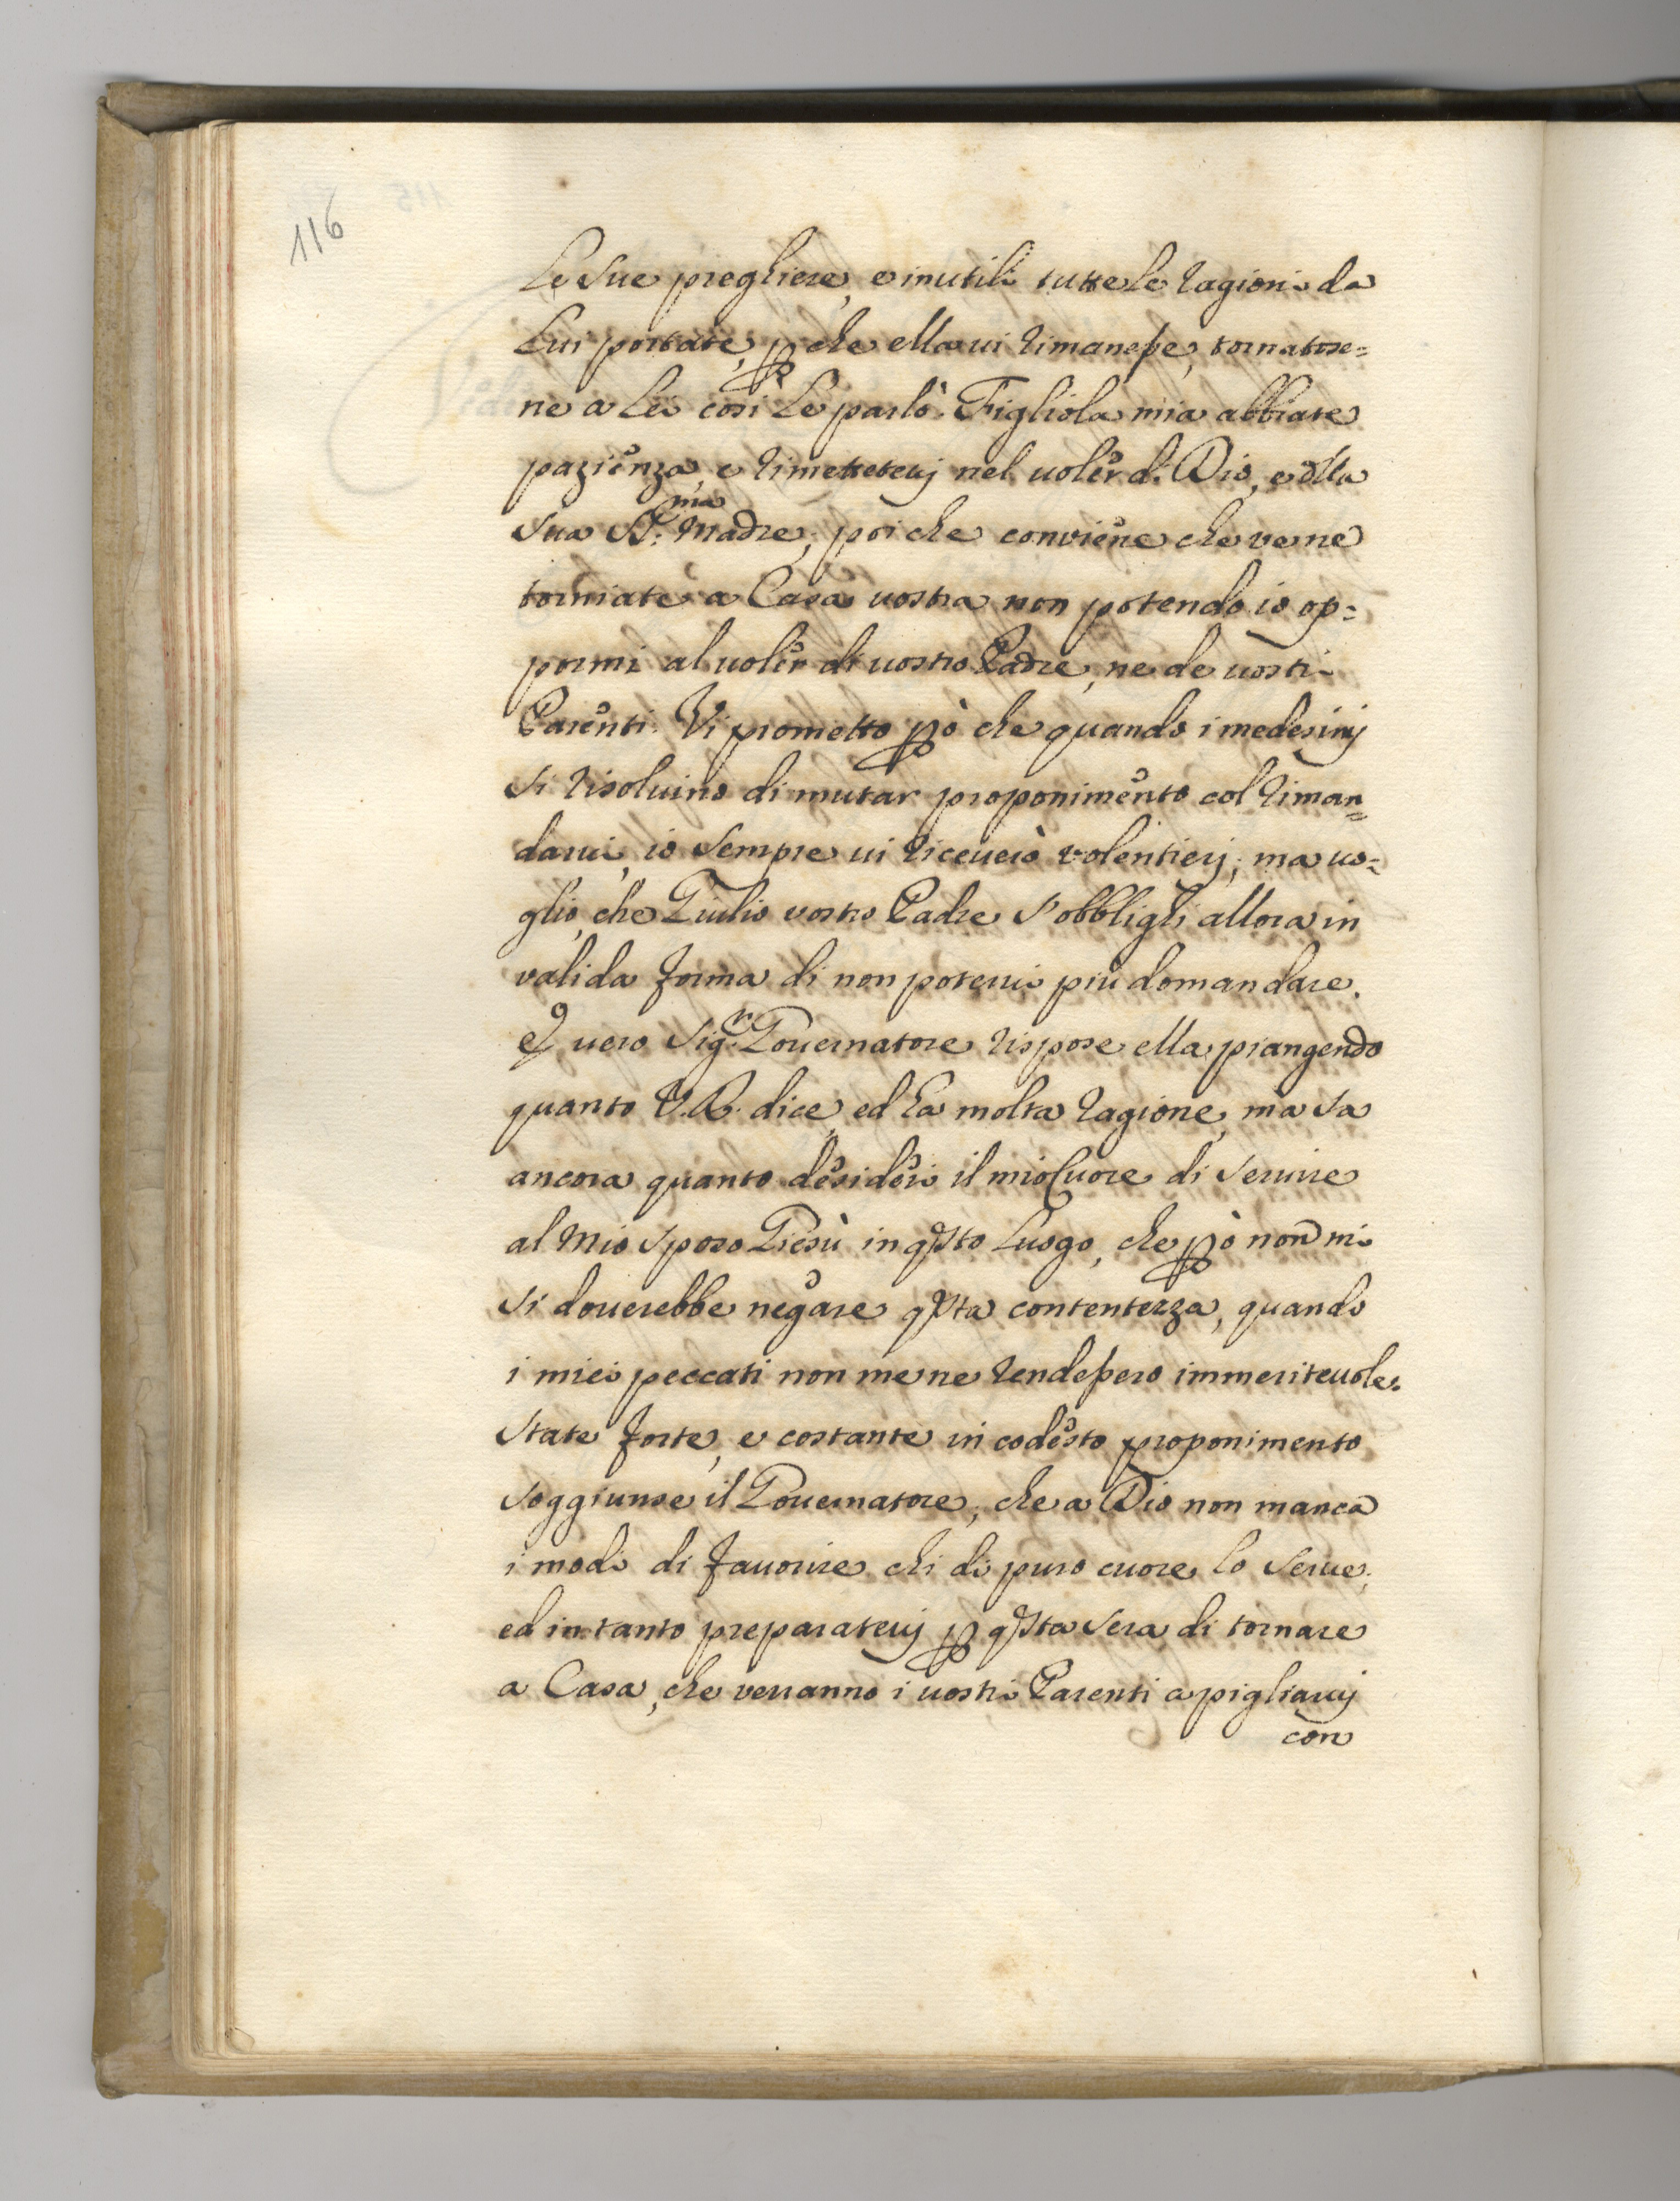 116
Le sue preghiere, e inutili tutte le ragioni da
Lui portate, p che ella vi rimanesse, tornatose=
ne a Lei così Le parlò. Figliola mia abbiate
pazienza, e rimettetevj nel voler d. Dio, e dlla
sua SS.ma Madre; poi che conviene che ve ne
torniate a Casa vostra non potendo io op=
pormi al voler di vostro Padre, ne de vostri
Parenti. Vi prometto pò che quando i medesimj
si risolvino di mutar proponimento col riman=
darvi, io sempre vi riceverò volentierj; ma vo=
glio, che Giulio vostro Padre s'obblighi allora in
valida forma di non potervi più domandare.
È vero Sig.r Governatore rispose ella piangendo
quanto V.R. dice, ed ha molta ragione, ma sa
ancora quanto desideri il mio Cuore di servire
al mio sposo Giesù in qsto Luogo, che pò non mi
si doverebbe negare qsta contentezza, quando
i miei peccati non me ne rendessero immeritevole.
State forte, e costante in codesto proponimento
soggiunse il Governatore, che a Dio non manca
i modi di favorire chi di puro cuore lo serve;
ed in tanto preparatevj p qsta sera di tornare
a Casa, che verranno i vostri Parenti a pigliarvj
con